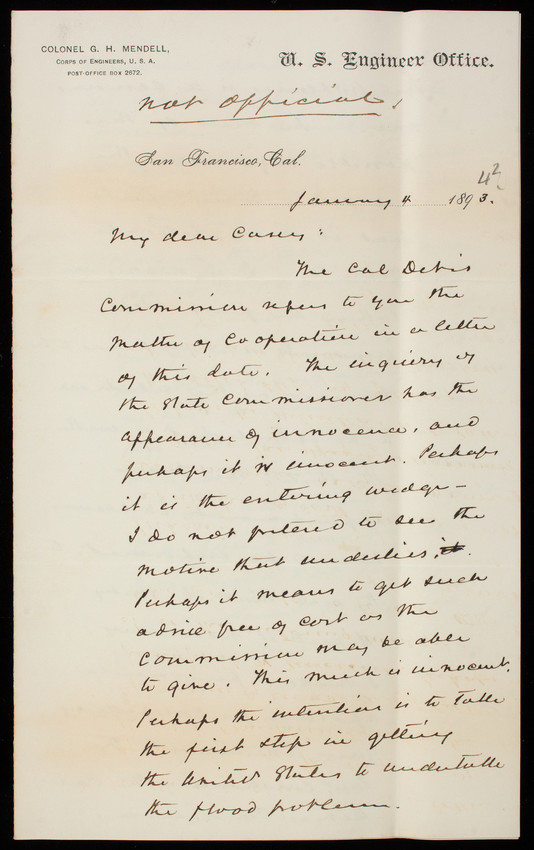 COLONEL G. H. MENDELL,
CORPS OF ENGINEERS, U. S. A.
POST-OFFICE BOX 2672.
U. S. Engineer Office.
Not official.
San Francisco, Cal.
42
January 4 1893.
My dear Casey:
The Cal Debris
Commission refers to you the
matter of Cooperation in a letter
of this date. The inquiry of
the State Commissioner has the
appearance of innocence, and
perhaps it is innocent. Perhaps
it is the entering wedge—
I do not pretend to see the
motive that underlies it.
Perhaps it means to get such
advice free of cost as the
Commission may be able
to give. This much is innocent.
Perhaps the intention is to take
the first step in getting
the United States to undertake
the flood problem.